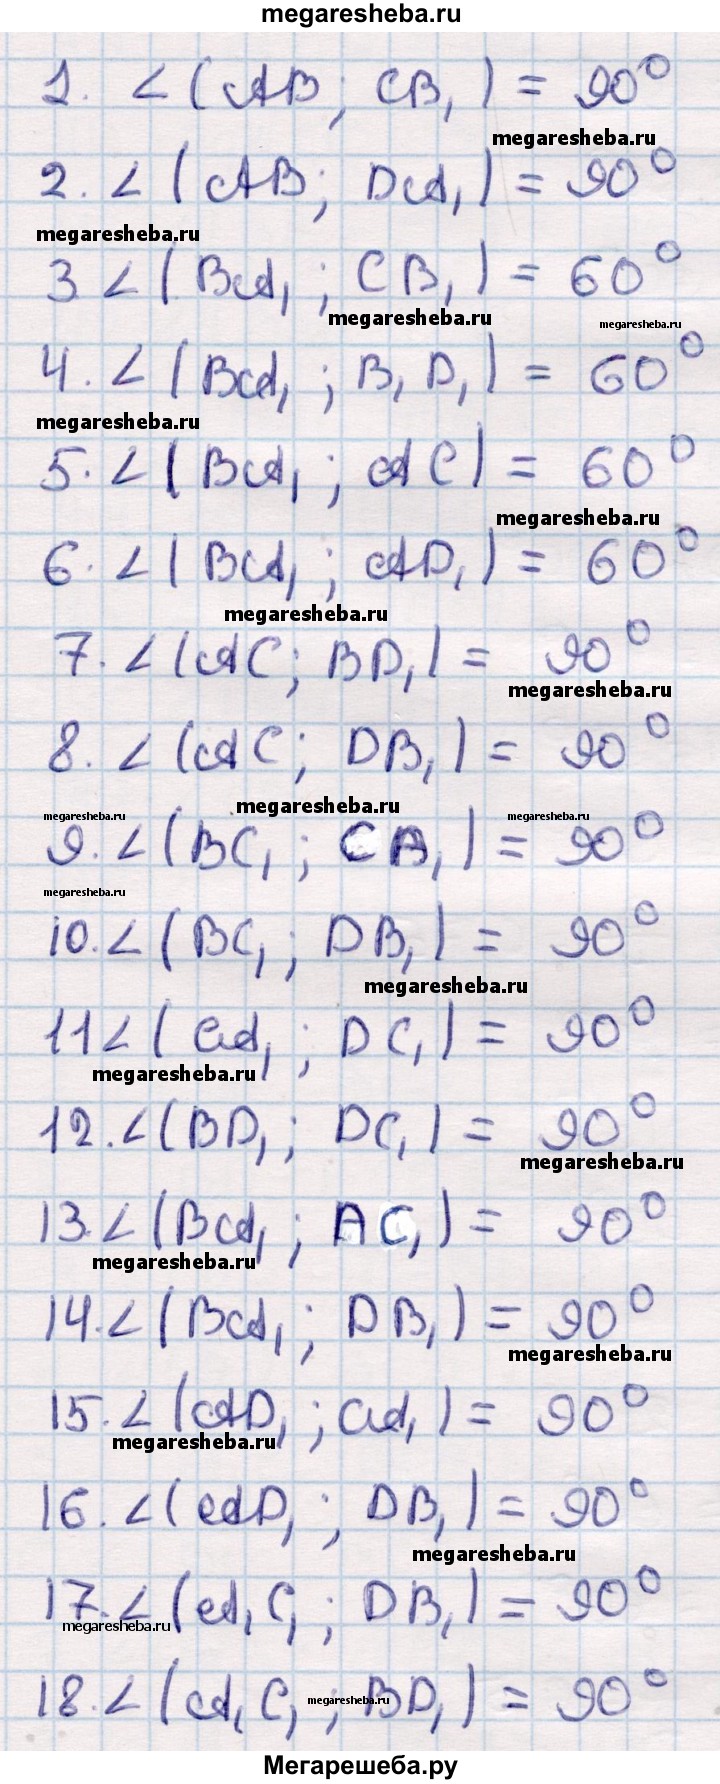 megaresheba.ru
1. ∠(AB; CB₁) = 90°
megaresheba.ru
2. ∠(AB; DA₁) = 90°
megaresheba.ru
3 ∠(BA₁; CB₁) = 60°
megaresheba.ru
megaresheba.ru
4. ∠(BA₁; B₁D₁) = 60°
megaresheba.ru
5. ∠(BA₁; AC) = 60°
megaresheba.ru
6. ∠(BA₁; AD₁) = 60°
megaresheba.ru
7. ∠(AC; BD₁) = 90°
megaresheba.ru
8. ∠(AC; DB₁) = 90°
megaresheba.ru
megaresheba.ru
megaresheba.ru
9. ∠(BC₁; CA₁) = 90°
megaresheba.ru
10. ∠(BC₁; DB₁) = 90°
megaresheba.ru
11 ∠(CA₁; DC₁) = 90°
megaresheba.ru
12. ∠(BD₁; DC₁) = 90°
megaresheba.ru
13. ∠(BA₁; AC₁) = 90°
megaresheba.ru
14. ∠(BA₁; DB₁) = 90°
megaresheba.ru
15. ∠(AD₁; CA₁) = 90°
megaresheba.ru
16. ∠(AD₁; DB₁) = 90°
megaresheba.ru
17. ∠(A₁C₁; DB₁) = 90°
megaresheba.ru
18. ∠(A₁C₁; BD₁) = 90°
megaresheba.ru
Мегарешеба.ру